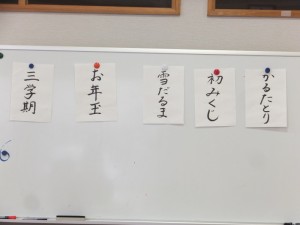 かるたとり
初みくじ
雪だるま
お年玉
三学期